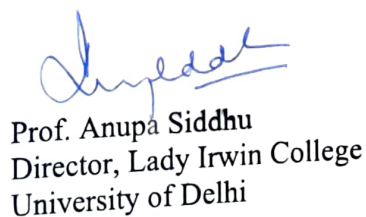 Prof. Anupa Siddhu
Director, Lady Irwin College
University of Delhi